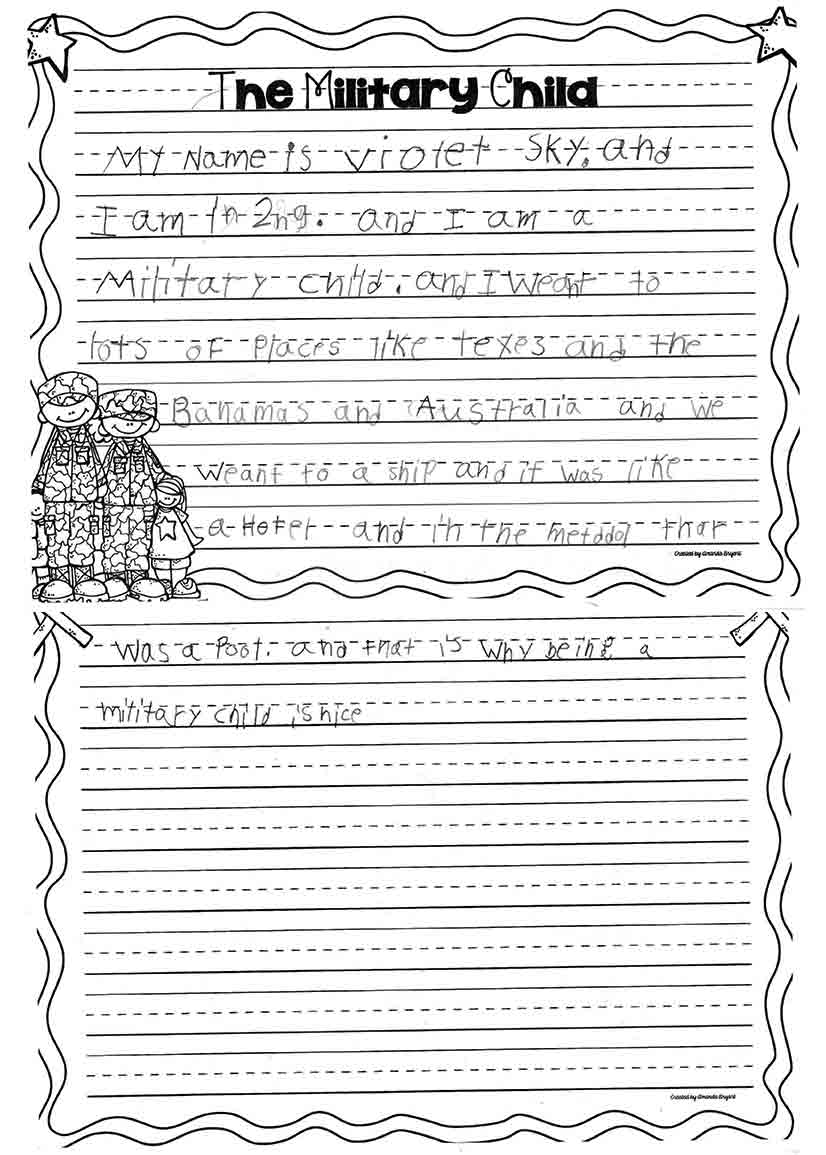 The Military Child
My Name is violet SKy. and
I am in 2ng. and I am a
Military child. and I weant to
lots of places like texes and the
Bahamas and Australia and we
weant to a ship and it was like
a Hotel and in the metddol thar
was a Poot. and that is why being a
military child is nice
Created by Amanda Bryant
Created by Amanda Bryant